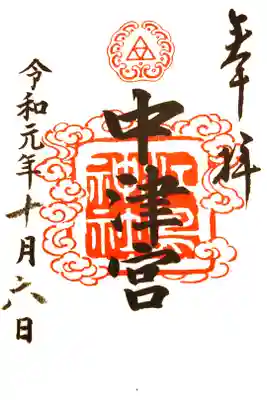 奉拝
中津宮
令和元年十月六日